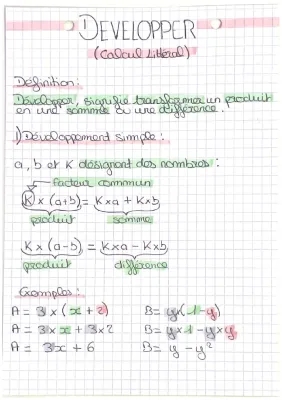 DEVELOPPER
(Calcul Littéral)
Définition :
Développer, signifie transformer un produit
en une somme ou une différence.
1) Développement simple :
a, b et K désignent des nombres :
facteur commun
K × (a+b) = K×a + K×b
produit somme
K × (a-b) = K×a - K×b
produit différence
Exemples :
A = 3 × (x + 2) B = y(1-y)
A = 3 × x + 3×2 B = y×1 - y×y
A = 3x + 6 B = y - y²